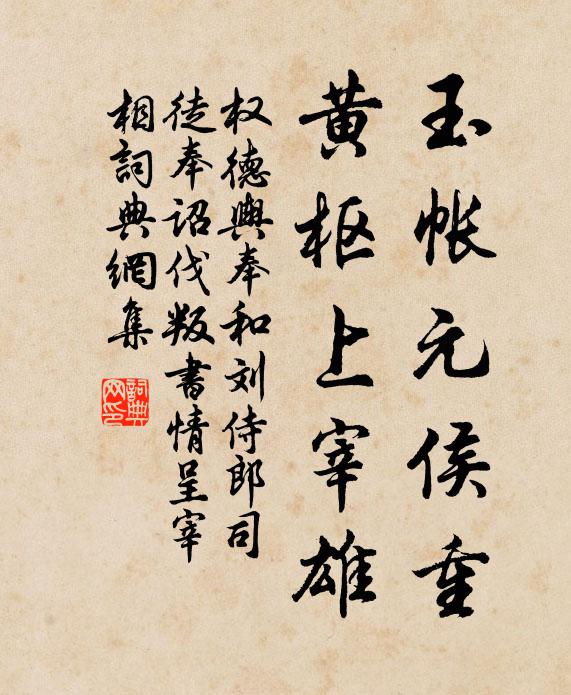 玉帐元侯重
黄枢上宰雄
权德舆奉和刘侍郎司
徒奉诏伐叛书情呈宰
相詞典網集
詞典
网印